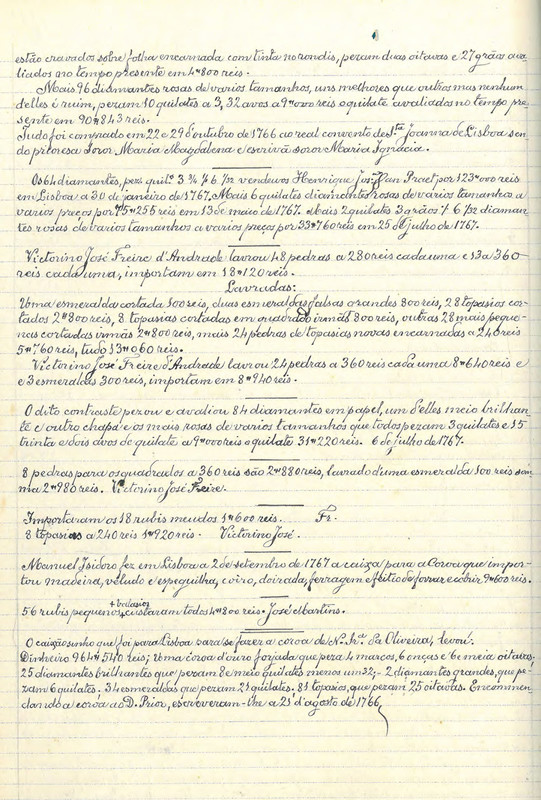 estão cravados sobre folha encarnada com tinta no rondis, pezam duas oitavas e 27 grãos ava-
liados no tempo presente em 4$800 reis.
Mais 96 diamantes rosas de varios tamanhos, uns melhores que outros mas nenhum
delles é ruim, pezam 10 quilates a 3, 32 avos a 9$000 reis o quilate avaliados no tempo pre-
sente em 90$843 reis.
Tudo foi comprado em 22 e 29 d'outubro de 1766 ao real convente de S.ta Joanna de Lisboa sen-
do prioresa Soror Maria Magdalena e escrivã soror Maria Ignacia.
Os 64 diamantes, pez. quil.es 3 3/4 1/6 1/32 vendeu-os Henrique Jos. Van Praet por 123$000 reis
em Lisboa a 30 de janeiro de 1767. Mais 6 quilates diamantes rosas de varios tamanhos a
varios preços por 75$255 reis em 13 de maio de 1767. Mais 2 quilates 3 grãos 1/6 1/32 diaman-
tes rosas de varios tamanhos a varios preços por 33$760 reis em 25 de julho de 1767.
Victorino José Freire d'Andrade lavrou 48 pedras a 280 reis cada uma e 13 a 360
reis cada uma, importam em 18$120 reis.
Lavradas:
Uma esmeralda cortada 100 reis, duas esmeraldas falsas grandes 800 reis, 28 topasios cor-
tados 2$800 reis, 8 topasios cortadas em quadrado irmãs 800 reis, outras 28 mais peque-
nas cortadas irmãs 2$800 reis, mais 24 pedras de topasias novas encarnadas a 240 reis
5$760 reis, tudo 13$060 reis.
Victorino José Freire d'Andrade lavrou 24 pedras a 360 reis cada uma 8$640 reis e
e 3 esmeraldas 300 reis, importam em 8$940 reis.
O dito contraste pezou e avaliou 84 diamantes em papel, um d'elles meio brilhan-
te e outro chapa e os mais rosas de varios tamanhos que todos pezam 3 quilates e 15
trinta e dois avos de quilate a 9$000 reis o quilate 31$220 reis. 6 de julho de 1767.
8 pedras para os quadrados a 360 reis são 2$880 reis, lavrado d'uma esmeralda 100 reis som-
ma 2$980 reis. Victorino José Freire.
Importaram os 18 rubis meudos 1$600 reis. Fr.
8 topasias a 240 reis 1$920 reis. Victorino José.
Manuel Isidoro fez em Lisboa a 2 de setembro de 1767 a caixa para a Coroa que impor-
tou madeira, veludo e espeguilha, coiro, doirada, ferragem e feitio de forrar e cobrir 9$600 reis.
+ balasios
56 rubis pequenos + custaram todos 4$800 reis. José Martins.
O caixãosinho que foi para Lisboa para se fazer a coroa de N. Sr.a da Oliveira, levou:
Dinheiro 964$540 reis; Uma coroa d'ouro forjada que peza 4 marcos, 6 onças e 6 e meia oitavas.
25 diamantes brilhantes que pezam 8 e meio quilates menos um 32; - 2 diamantes grandes, que pe-
zam 6 quilates. 34 esmeraldas que pezam 21 quilates. 81 topasios, que pezam 25 oitavas. Encommen-
dando a coroa ao D. Prior, escreveram-lhe a 21 d'agosto de 1766